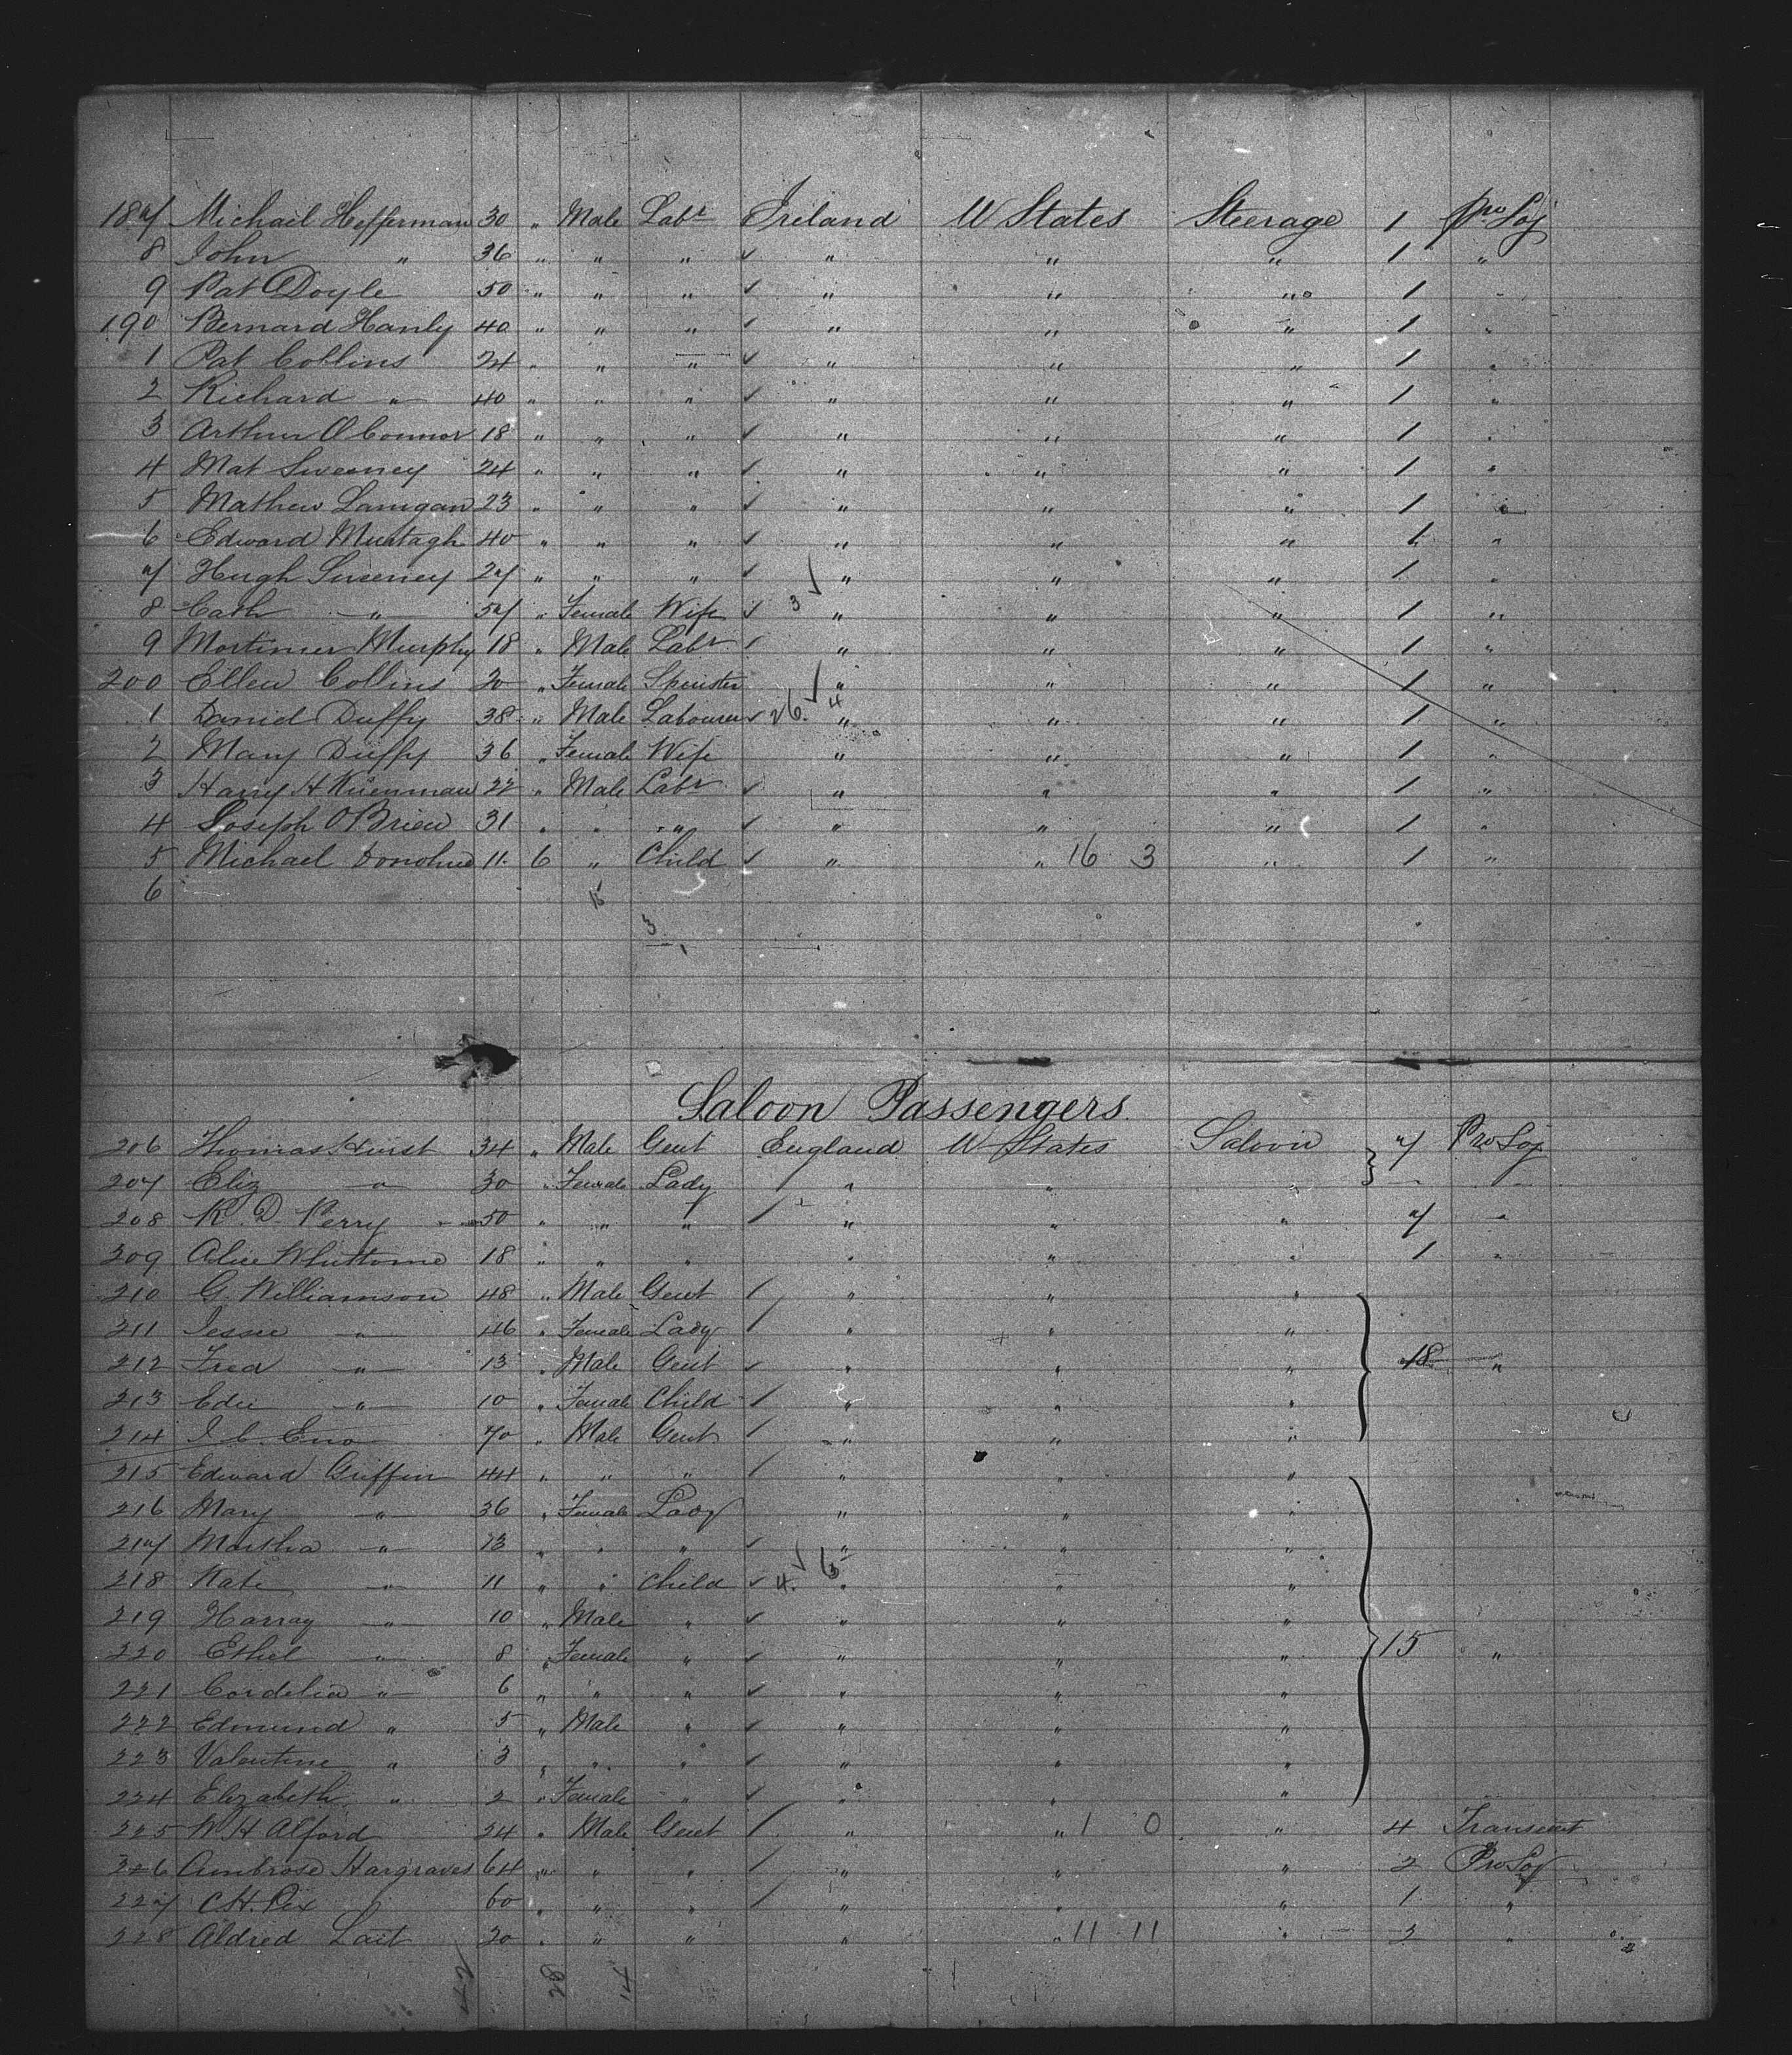 187 Michael Hefferman 30 " Male Labr Ireland U States Steerage 1 Pro Soj
8 John " 36 " " " " " " 1 "
9 Pat Doyle 50 " " " " " " 1 "
190 Bernard Hanly 40 " " " " " " 1 "
1 Pat Collins 24 " " " " " " 1 "
2 Richard " 40 " " " " " " 1 "
3 Arthur O'Connor 18 " " " " " " 1 "
4 Mat Sweeney 24 " " " " " " 1 "
5 Mathew Lanigan 23 " " " " " " 1 "
6 Edward Murtagh 40 " " " " " " 1 "
7 Hugh Sweeney 27 " " " " " " 1 "
8 Cath " 57 " Female Wife 3 " " " 1 "
9 Mortimer Murphy 18 " Male Labr " " " 1 "
200 Ellen Collins 20 " Female Spinster " " " 1 "
1 Daniel Duffy 38 " Male Labourer 26 4 " " " 1 "
2 Mary Duffy 36 " Female Wife " " " 1 "
3 Harry H 22 " Male Labr " " " 1 "
4 Joseph O'Brien 31 " " " " " " 1 "
5 Michael Donohue 11 6 " Child " " 16 3 " 1 "
6
15
3
1
Saloon Passengers
206 Thomas Hurst 34 " Male Gent England U States Saloon 7 Pro Soj
207 Eliz " 30 " Female Lady " " " " "
208 R. D. Perry 50 " " " " " " 7 "
209 Alice Whittome 18 " " " " " " 1 "
210 G. Williamson 48 " Male Gent " " "
211 Jessie " 46 " Female Lady " " "
212 Fred " 13 " Male Gent " " " 18 "
213 Edie " 10 " Female Child " " "
214 J. C. Eno 70 " Male Gent " " "
215 Edward Griffin 44 " " " " " "
216 Mary " 36 " Female Lady " " "
217 Martha " 13 " " " " " "
218 Kate " 11 " " Child 4 6 " " "
219 Harray " 10 " Male " " " "
220 Ethel " 8 " Female " " " " 15 "
221 Cordelia " 6 " " " " " "
222 Edmund " 5 " Male " " " "
223 Valentine " 3 " " " " " "
224 Elizabeth " 2 " Female " " " "
225 W H Alford 24 " Male Gent " " 1 0 " 4 Transient
226 Ambrose Hargraves 64 " " " " " " 2 Pro Soj
227 C H. Pix 60 " " " " " " 1 "
228 Aldred Lait 20 " " " " " 11 11 " 2 "
28 14